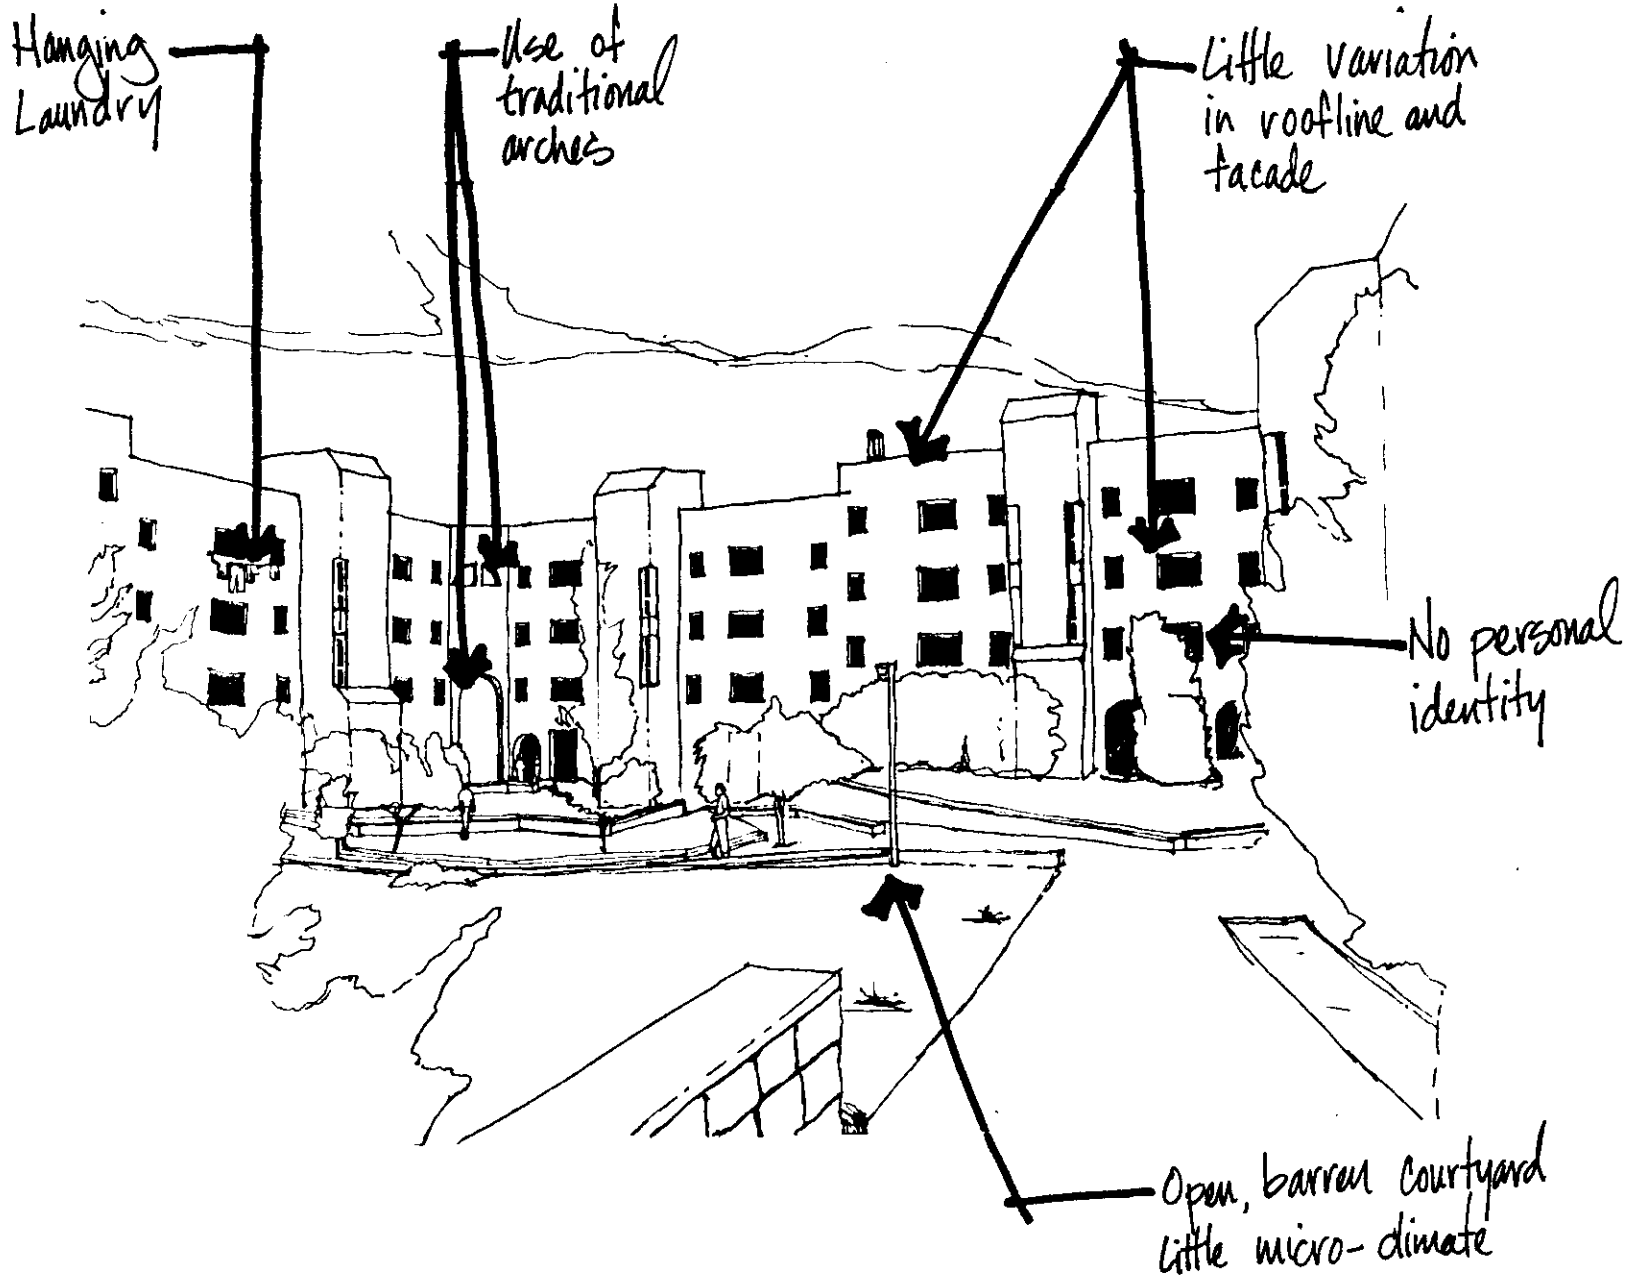 Hanging
Laundry
Use of
traditional
arches
Little variation
in roofline and
facade
No personal
identity
Open, barren courtyard
little micro-climate